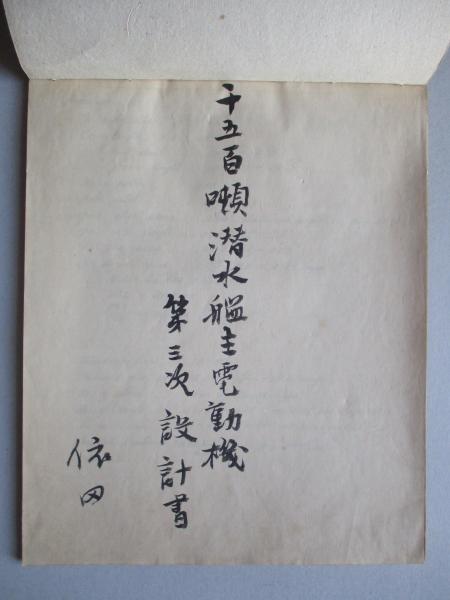 千五百噸潜水艦主電動機
第三次設計書
依田